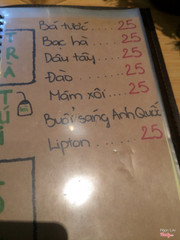 TRÀ
TÚI
Bá tước .... 25
Bạc hà ..... 25
Dâu tây .... 25
Đào ..... 25
Mâm xôi .... 25
Buổi sáng Anh Quốc
Lipton .... 25
25